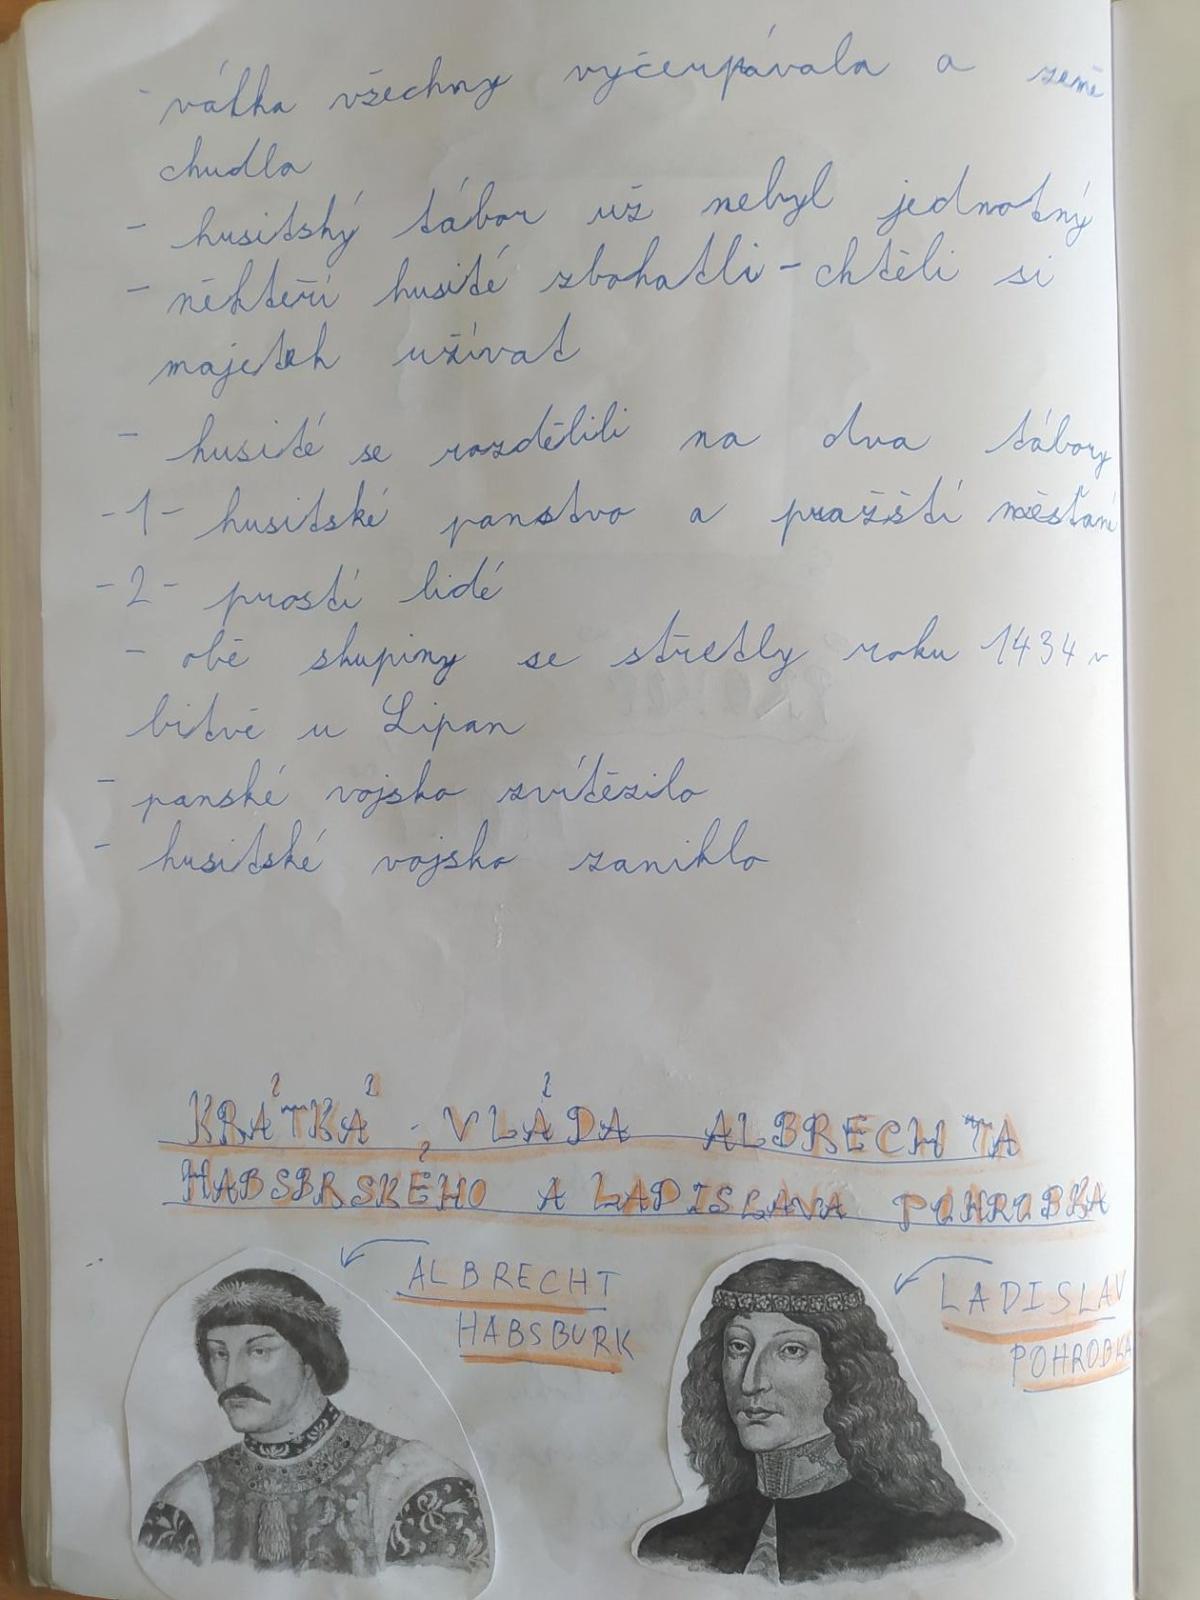 - válka všechny vyčerpávala a země
chudla
- husitský tábor už nebyl jednotný
- někteří husité zbohatli - chtěli si
majetek užívat
- husité se rozdělili na dva tábory
- 1 - husitské panstvo a pražští měšťané
- 2 - prostí lidé
- obě skupiny se střetly roku 1434 v
bitvě u Lipan
- panské vojsko zvítězilo
- husitské vojsko zaniklo
KRÁTKÁ VLÁDA ALBRECHTA
HABSBRSKÉHO A LADISLAVA POHROBKA
ALBRECHT
HABSBURK
LADISLAV
POHROBKA